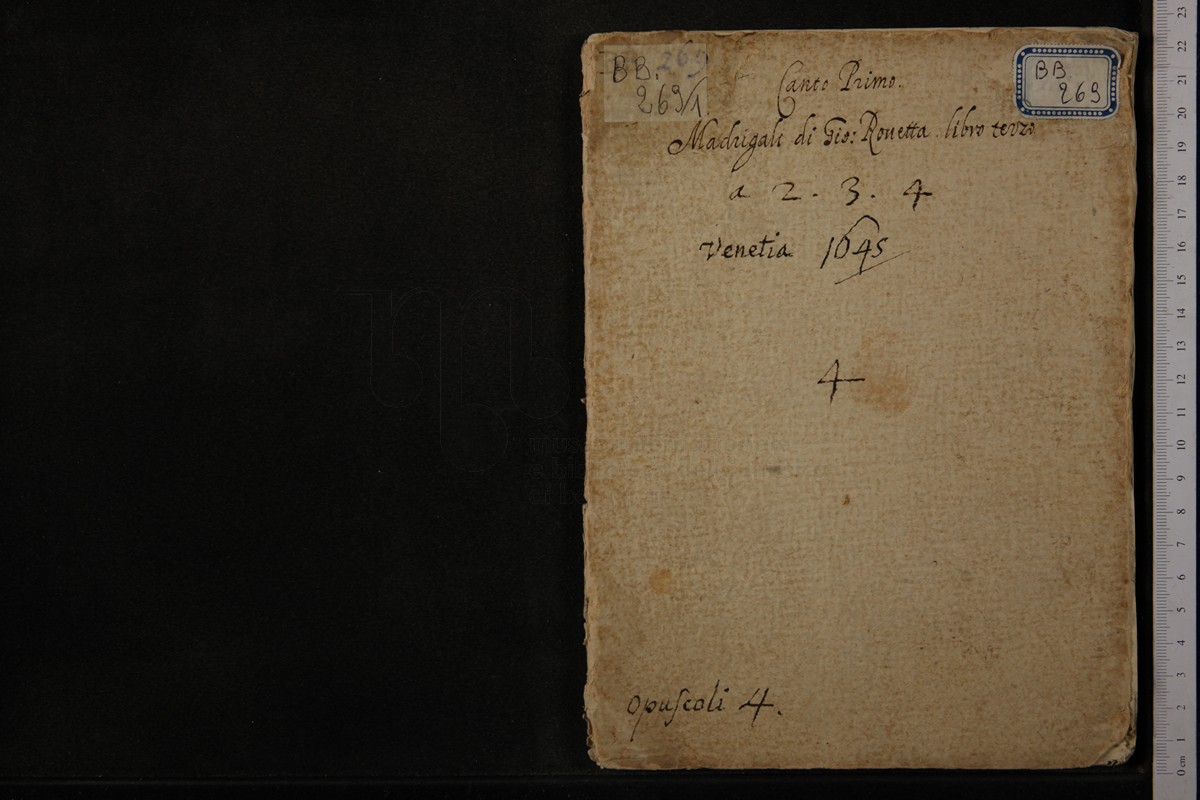 BB. 269
269/1
BB.
269
Canto Primo.
Madrigali di Gio: Rouetta. libro terzo
a 2. 3. 4
Venetia 1645
4
opuſcoli 4.
23
22
21
20
19
18
17
16
15
14
13
12
11
10
9
8
7
6
5
4
3
2
1
0 cm